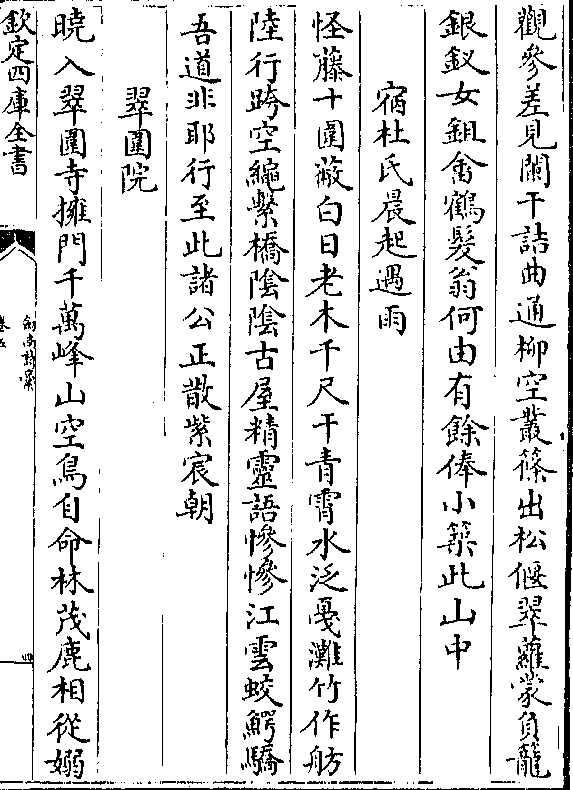 觀參差見闌干詰曲通柳空叢篠出松偃翠蘿蒙負籠
銀釵女鉏畬鶴髮翁何由有餘俸小築此山中
宿杜氏晨起遇雨
怪藤十圍蔽白日老木千尺干青霄水泛戞灘竹作舫
陸行跨空繩繫橋陰陰古屋精靈語慘慘江雲蛟鰐驕
吾道非耶行至此諸公正散紫宸朝
翠圍院
曉入翠圍寺擁門千萬峰山空鳥自命林茂鹿相從嫋
欽定四庫全書
劍南詩藁
卷五
四